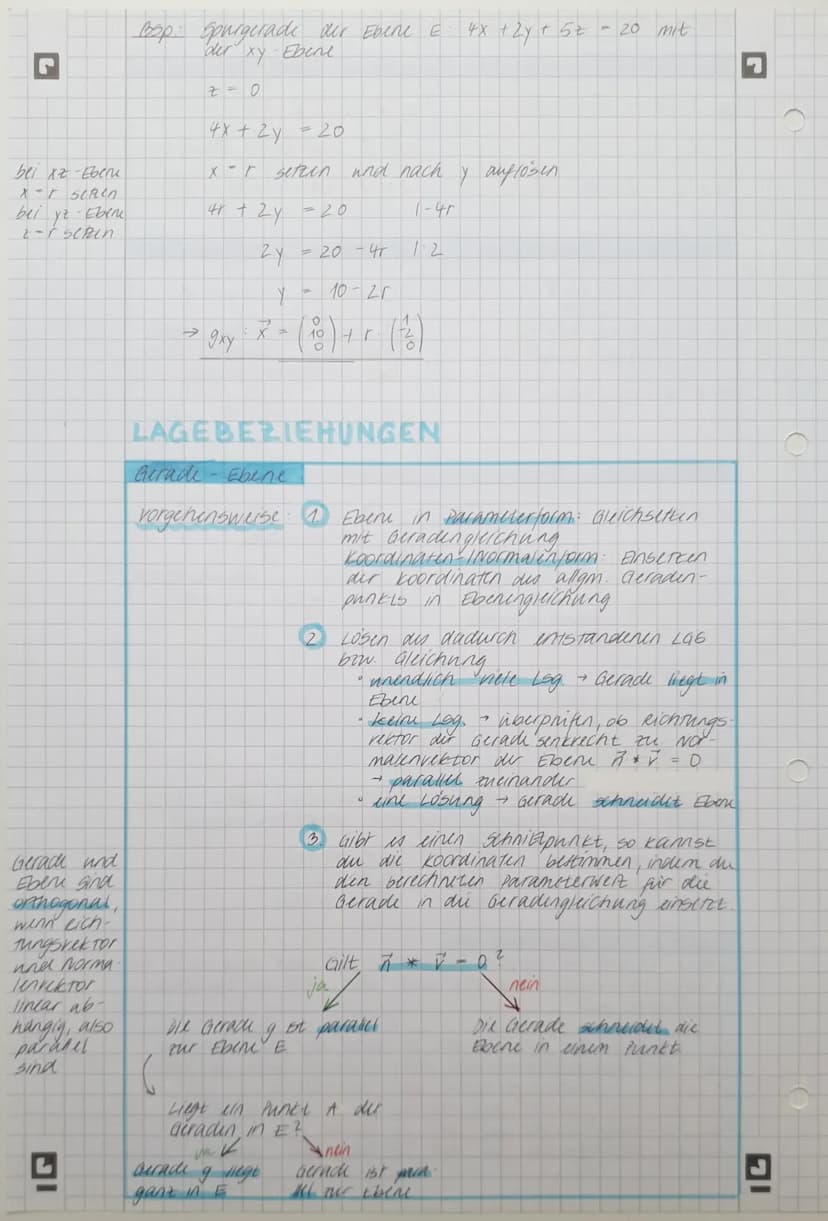 Bsp: Spurgerade der Ebene E: 4x + 2y + 5z = 20 mit
der xy-Ebene
z = 0
4x + 2y = 20
x = r setzen und nach y auflösen
4r + 2y = 20 |-4r
2y = 20 - 4r |:2
y = 10 - 2r
→ gxy: x⃗ = (0 10 0) + r · (1 -2 0)
bei xz-Ebene
x = r setzen
bei yz-Ebene
z = r setzen
LAGEBEZIEHUNGEN
Gerade - Ebene
Vorgehensweise: 1 Ebene in Parameterform: Gleichsetzen
mit Geradengleichung
Koordinaten-/Normalenform: Einsetzen
der Koordinaten des allgm. Geraden-
punkts in Ebenengleichung
2 Lösen des dadurch entstandenen LGS
bzw. Gleichung
• unendlich viele Lsg. → Gerade liegt in
Ebene
• keine Lsg. → überprüfen, ob Richtungs-
vektor der Gerade senkrecht zu Nor-
malenvektor der Ebene n⃗ * v⃗ = 0
→ parallel zueinander
• eine Lösung → Gerade schneidet Ebene
3 Gibt es einen Schnittpunkt, so kannst
du die Koordinaten bestimmen, indem du
den berechneten Parameterwert für die
Gerade in die Geradengleichung einsetzt.
Gerade und
Ebene sind
orthogonal,
wenn Rich-
tungsvektor
und Norma-
lenvektor
linear ab-
hängig, also
parallel
sind
Gilt n⃗ * v⃗ = 0?
ja nein
Die Gerade g ist parallel
zur Ebene E
Die Gerade schneidet die
Ebene in einem Punkt.
Liegt ein Punkt A der
Geraden in E?
ja nein
Gerade g liegt
ganz in E
Gerade ist paral-
lel zur Ebene